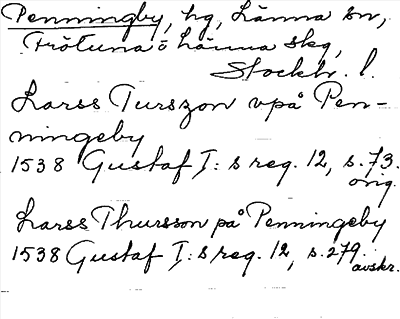 Penningby, hg, Länna sn,
Frötuna o Länna skg,
Stockh. l.
Larss Turszon vpå Pen-
ningeby
1538 Gustaf I:s reg. 12, s. 73.
orig.
Larss Thursson på Penningeby
1538 Gustaf I:s reg. 12, s. 279.
avskr.